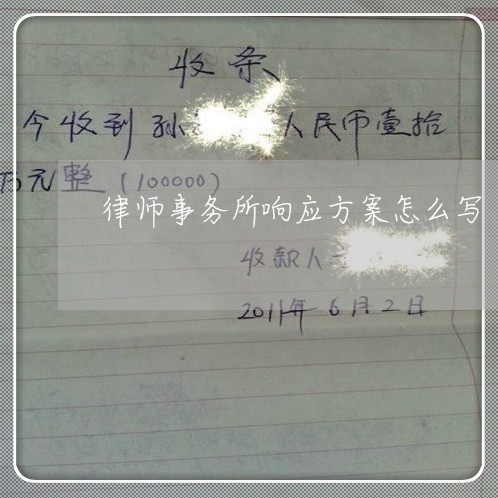 收条
今收到孙 人民币壹拾
万元整(100000)
律师事务所响应方案怎么写
收款人
2011年6月2日